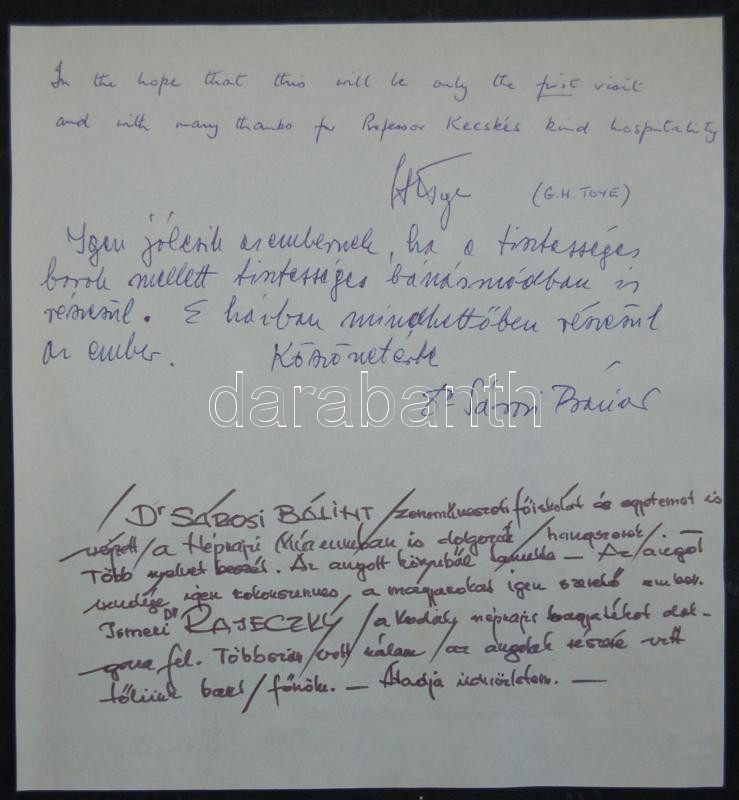 In the hope that this will be only the first visit
and with many thanks for Professor Kecskés kind hospitality
(G.H. TOYE)
Igen jólesik az embernek, ha a tisztességes
borok mellett tisztességes bánásmódban is
részesül. E házban mindkettőben részesül
az ember. Köszönettel
Dr Sárosi Bálint
darabanth
/ Dr SÁROSI BÁLINT / zeneművészeti főiskolát és egyetemet is
végzett / a Néprajzi Múzeumban is dolgozik / hangszerek /. —
Több nyelvet beszél. Az angolt könyvből tanulta — Az / angol
vendége igen rokonszenves, a magyarokat igen szerető ember.
Ismeri Dr RAJECZKY / a Kodály néprajzi hagyatékot dol-
gozza fel. Többször / volt nálam / az angolok részére vitt
tőlünk bort / főnöke. — Átadja üdvözletem. —